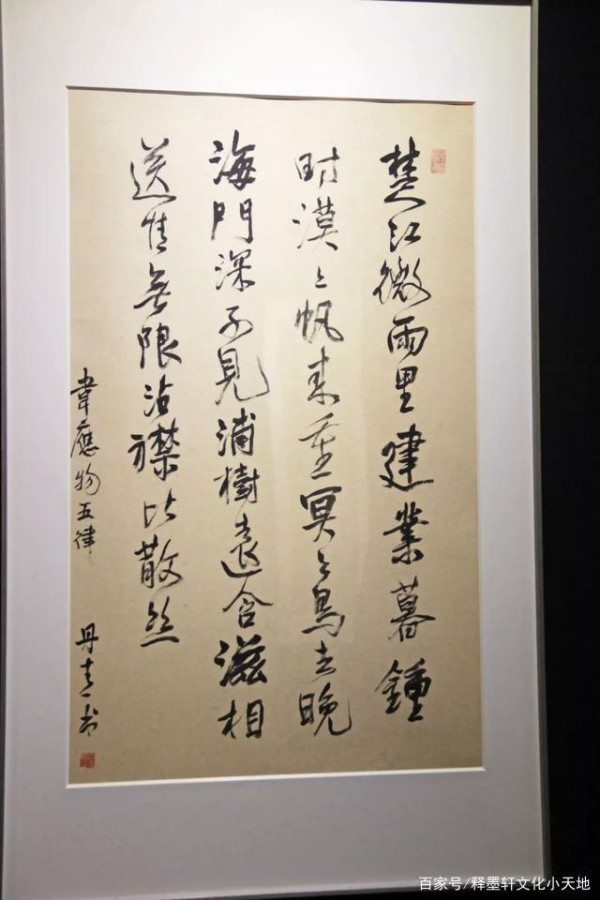 楚江微雨里建業暮鍾
时漠〻帆来重冥〻鳥去晚
海門深不見浦樹遠含滋相
送情無限沾襟比散丝
韋應物五律 丹青书
百家号/释墨轩文化小天地